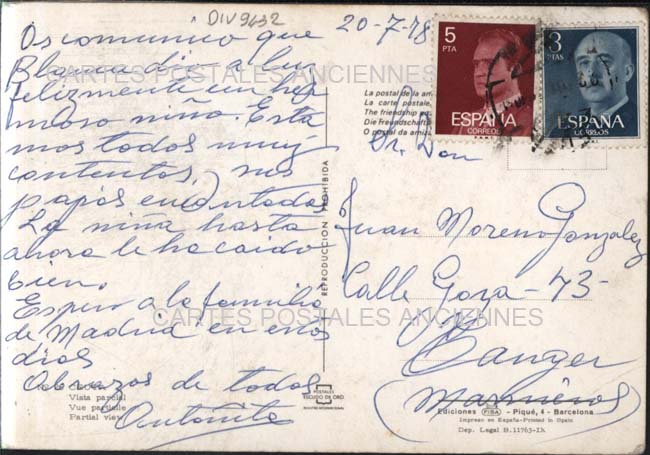 DIV9432
20-7-78
Os comunico que
Blanca dio a luz
felizmente un her
moso niño. Esta
mos todos muy
contentos, sus
papás encantados
La niña hasta
ahora le ha caido
bien.
Espero a la familia
de Madrid en estos
dias
Abrazos de todos
Antoñita
Vista parcial
Vue partielle
Partial view
CARTES POSTALES ANCIENNES
CARTES POSTALES ANCIENNES
REPRODUCCION PROHIBIDA
POSTALES
ESCUDO DE ORO
La postal de la am
La carte postale,
The friendship po
Die Freundschaft
O postal da amiza
5
PTA
ESPAÑA
CORREOS
3
PTAS
ESPAÑA
CORREOS
Sr. Don
Juan Moreno Gonzalez
Calle Goza -73-
Tanger
(Marruecos)
Ediciones FISA - Piqué, 4 - Barcelona
Impreso en España-Printed in Spain
Dep. Legal B.11763-IX